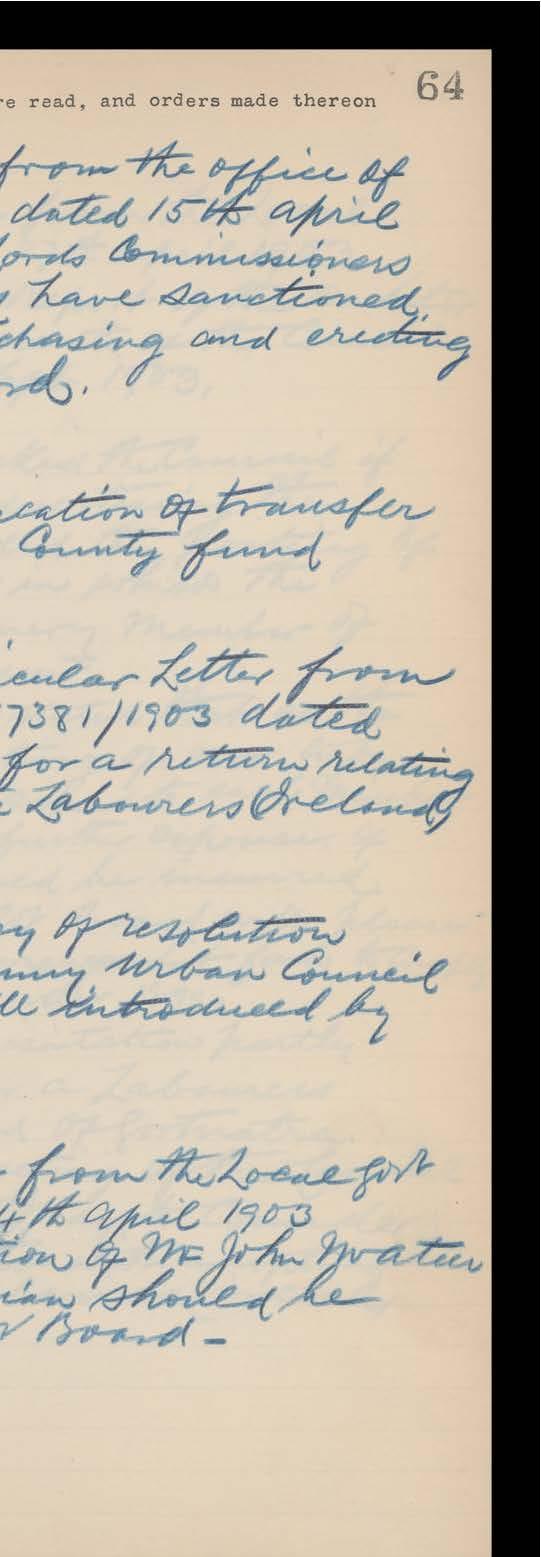 64
re read, and orders made thereon
from the office of
dated 15th April
ords Commissioners
s have sanctioned
chasing and erecting
rd.
cation of transfer
County fund
icular Letter from
7381/1903 dated
for a return relating
e Labourers (Ireland)
py of resolution
Urban Council
ll introduced by
from the Local Govt
4th April 1903
tion of Mr John
ian should be
r Board –